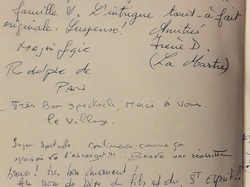 famille ♡. L'intrigue tout-à-fait
originale. Suspense! Amitiés
Magnifique Irène D.
Rodolphe de (La Martre)
Paris
Très Bon spectacle, Merci à vous.
Le Village.
Super spectacle. Continuez comme ça
Bravo vos
bravo! Très bon
Au nom de Père du fils et du St Esprit!!